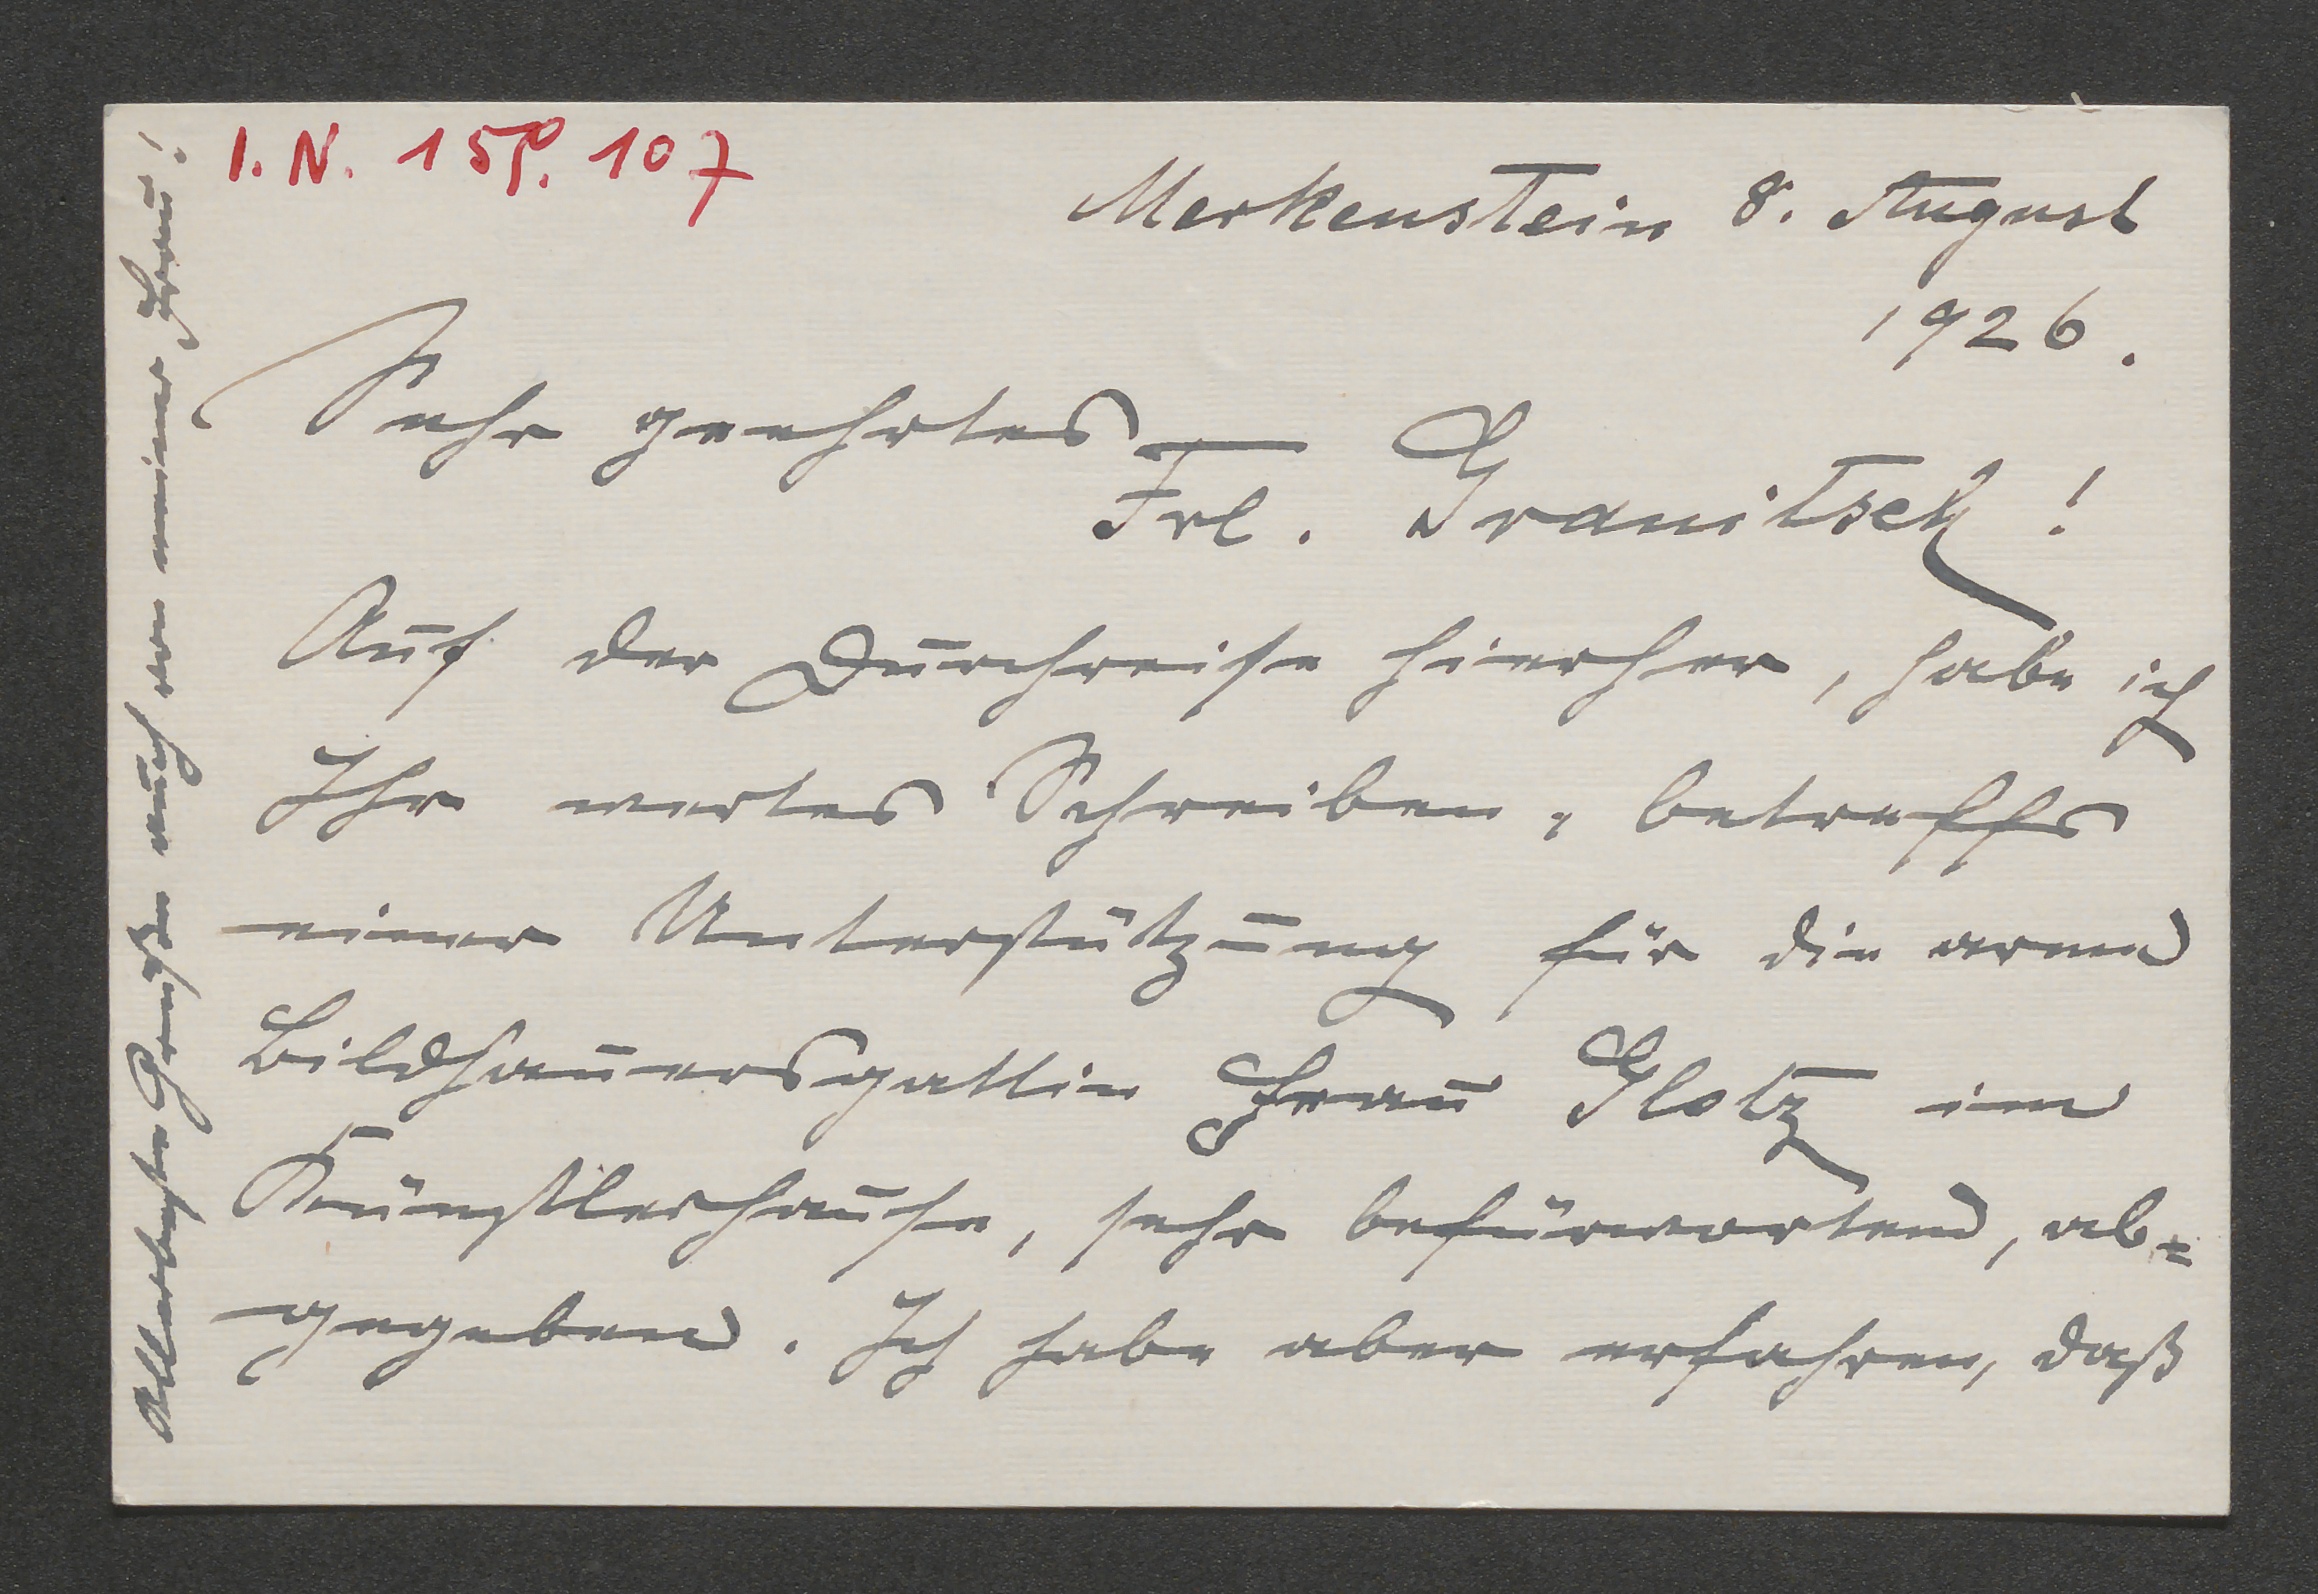 I. N. 158. 107
Merkenstein 8. August
1926.
Sehr geehrtes
Frl. Granitsch!
Auf der Durchreise hierher, habe ich
Ihr wertes Schreiben, betreffs
einer Unterstützung für die arme
Bildhauersgattin Frau Glotz im
Künstlerhause, sehr befürwortend, ab=
gegeben. Ich habe aber erfahren, daß
Allerbeste Grüße auch von meiner Frau!